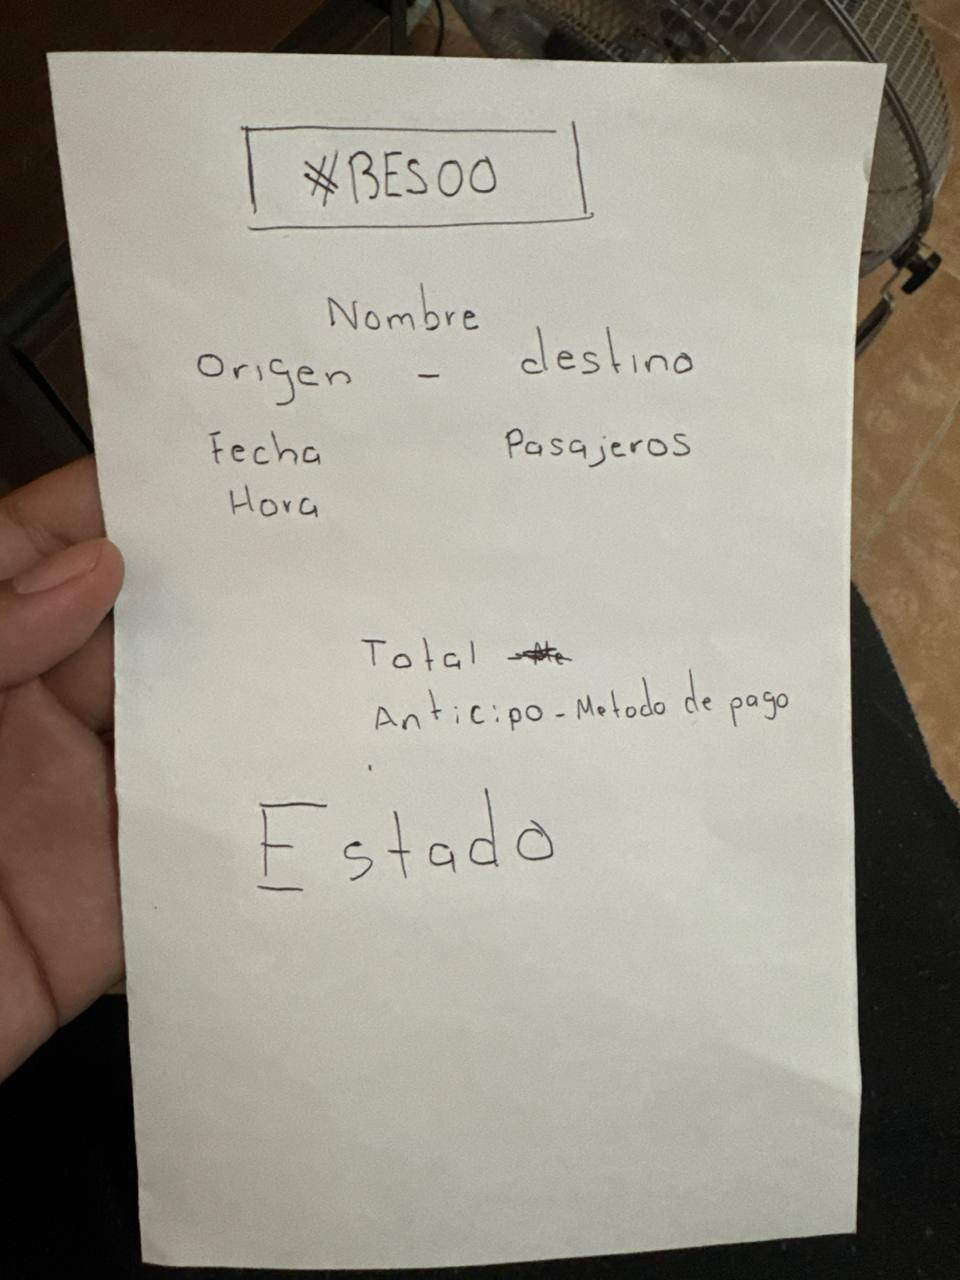 #BES00
Nombre
Origen - destino
Fecha Pasajeros
Hora
Total
Anticipo - Metodo de pago
Estado